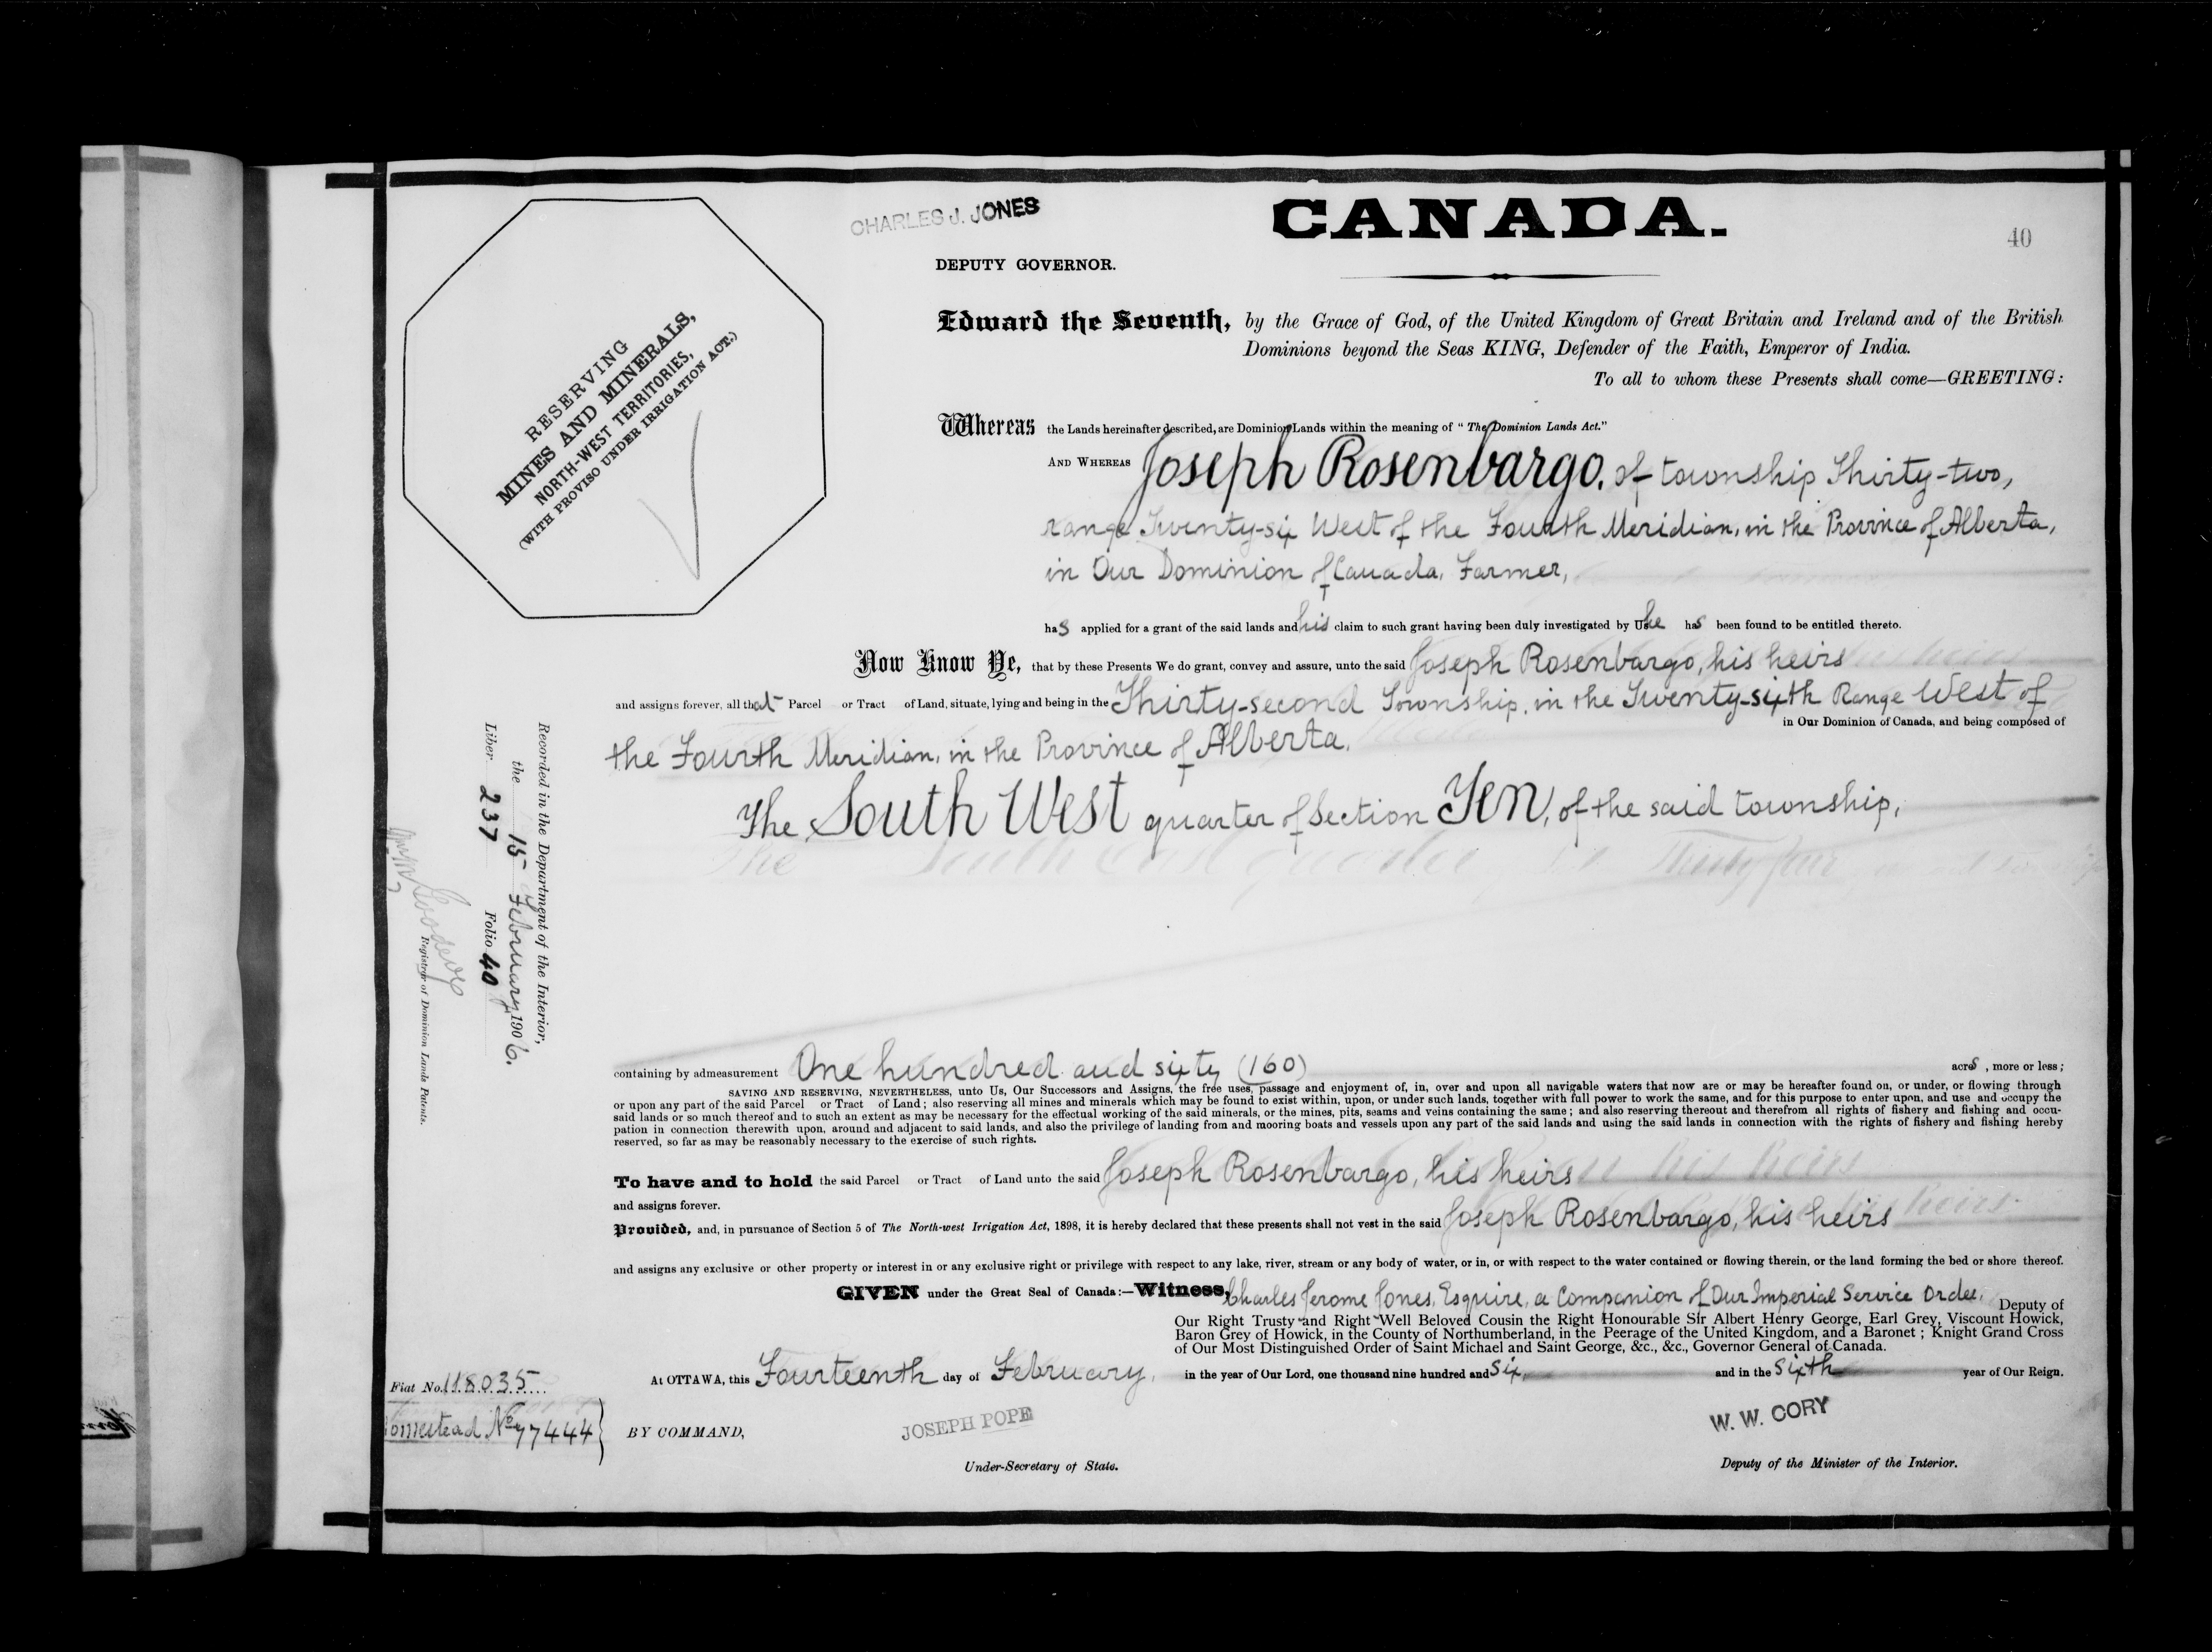 CHARLES J. JONES
CANADA.
40
DEPUTY GOVERNOR.
RESERVING
MINES AND MINERALS,
NORTH-WEST TERRITORIES,
(WITH PROVISO UNDER IRRIGATION ACT.)
Edward the Seventh, by the Grace of God, of the United Kingdom of Great Britain and Ireland and of the British
Dominions beyond the Seas KING, Defender of the Faith, Emperor of India.
To all to whom these Presents shall come—GREETING:
Whereas the Lands hereinafter described, are Dominion Lands within the meaning of "The Dominion Lands Act."
AND WHEREAS Joseph Rosenbargo, of township Thirty-two,
range Twenty-six West of the Fourth Meridian, in the Province of Alberta,
in Our Dominion of Canada, Farmer,
has applied for a grant of the said lands and his claim to such grant having been duly investigated by Us he has been found to be entitled thereto.
Now Know Ye, that by these Presents We do grant, convey and assure, unto the said Joseph Rosenbargo, his heirs
and assigns forever, all that Parcel or Tract of Land, situate, lying and being in the Thirty-second Township, in the Twenty-sixth Range West of
in Our Dominion of Canada, and being composed of
the Fourth Meridian, in the Province of Alberta.
The South West quarter of Section Ten, of the said township,
containing by admeasurement One hundred and sixty (160) acres, more or less;
SAVING AND RESERVING, NEVERTHELESS, unto Us, Our Successors and Assigns, the free uses, passage and enjoyment of, in, over and upon all navigable waters that now are or may be hereafter found on, or under, or flowing through
or upon any part of the said Parcel or Tract of Land; also reserving all mines and minerals which may be found to exist within, upon, or under such lands, together with full power to work the same, and for this purpose to enter upon, and use and occupy the
said lands or so much thereof and to such an extent as may be necessary for the effectual working of the said minerals, or the mines, pits, seams and veins containing the same; and also reserving thereout and therefrom all rights of fishery and fishing and occu-
pation in connection therewith upon, around and adjacent to said lands, and also the privilege of landing from and mooring boats and vessels upon any part of the said lands and using the said lands in connection with the rights of fishery and fishing hereby
reserved, so far as may be reasonably necessary to the exercise of such rights.
To have and to hold the said Parcel or Tract of Land unto the said Joseph Rosenbargo, his heirs
and assigns forever.
Provided, and, in pursuance of Section 5 of The North-west Irrigation Act, 1898, it is hereby declared that these presents shall not vest in the said Joseph Rosenbargo, his heirs
and assigns any exclusive or other property or interest in or any exclusive right or privilege with respect to any lake, river, stream or any body of water, or in, or with respect to the water contained or flowing therein, or the land forming the bed or shore thereof.
GIVEN under the Great Seal of Canada:—Witness, Charles Jerome Jones, Esquire, a Companion of Our Imperial Service Order, Deputy of
Our Right Trusty and Right Well Beloved Cousin the Right Honourable Sir Albert Henry George, Earl Grey, Viscount Howick,
Baron Grey of Howick, in the County of Northumberland, in the Peerage of the United Kingdom, and a Baronet; Knight Grand Cross
of Our Most Distinguished Order of Saint Michael and Saint George, &c., &c., Governor General of Canada.
At OTTAWA, this Fourteenth day of February, in the year of Our Lord, one thousand nine hundred and Six, and in the Sixth year of Our Reign.
Fiat No. 118035
omestead No 77444
BY COMMAND,
JOSEPH POPE
Under-Secretary of State.
W. W. CORY
Deputy of the Minister of the Interior.
Recorded in the Department of the Interior,
the 15 February, 1906.
Liber 237 Folio 40
Registrar of Dominion Lands Patents.